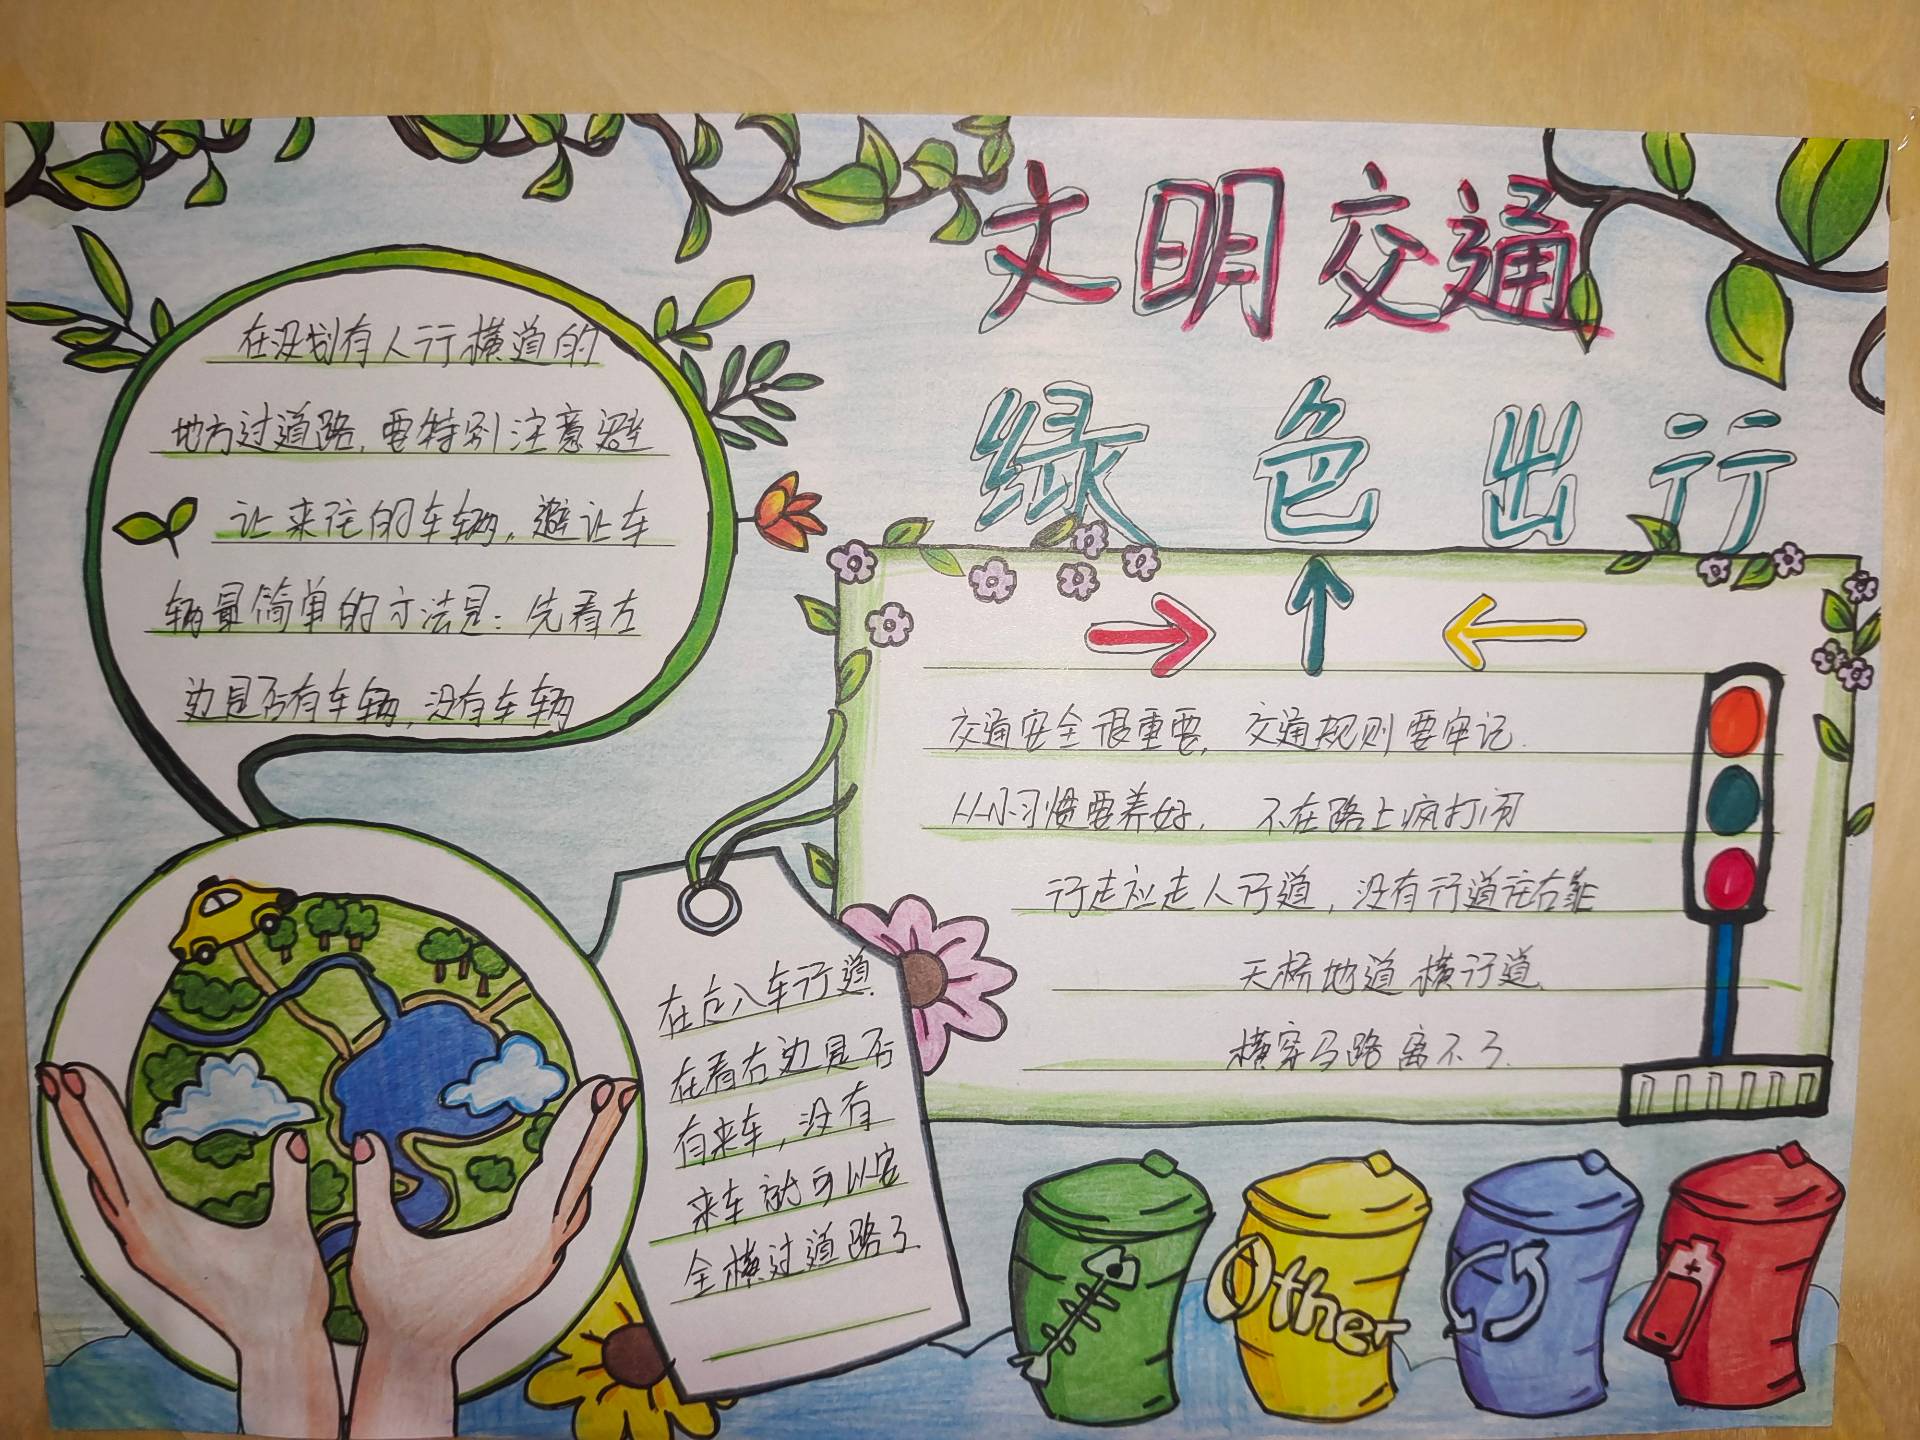 文明交通
绿色出行
在没划有人行横道的
地方过道路,要特别注意避
让来往的车辆,避让车
辆最简单的方法是:先看左
边是否有车辆,没有车辆
在走入车行道,
在看右边是否
有来车,没有
来车就可以安
全横过道路了
交通安全很重要,交通规则要牢记.
从小习惯要养好,不在路上疯打闹
行走应走人行道,没有行道往右靠
天桥地道横行道,
横穿马路离不了.
Other